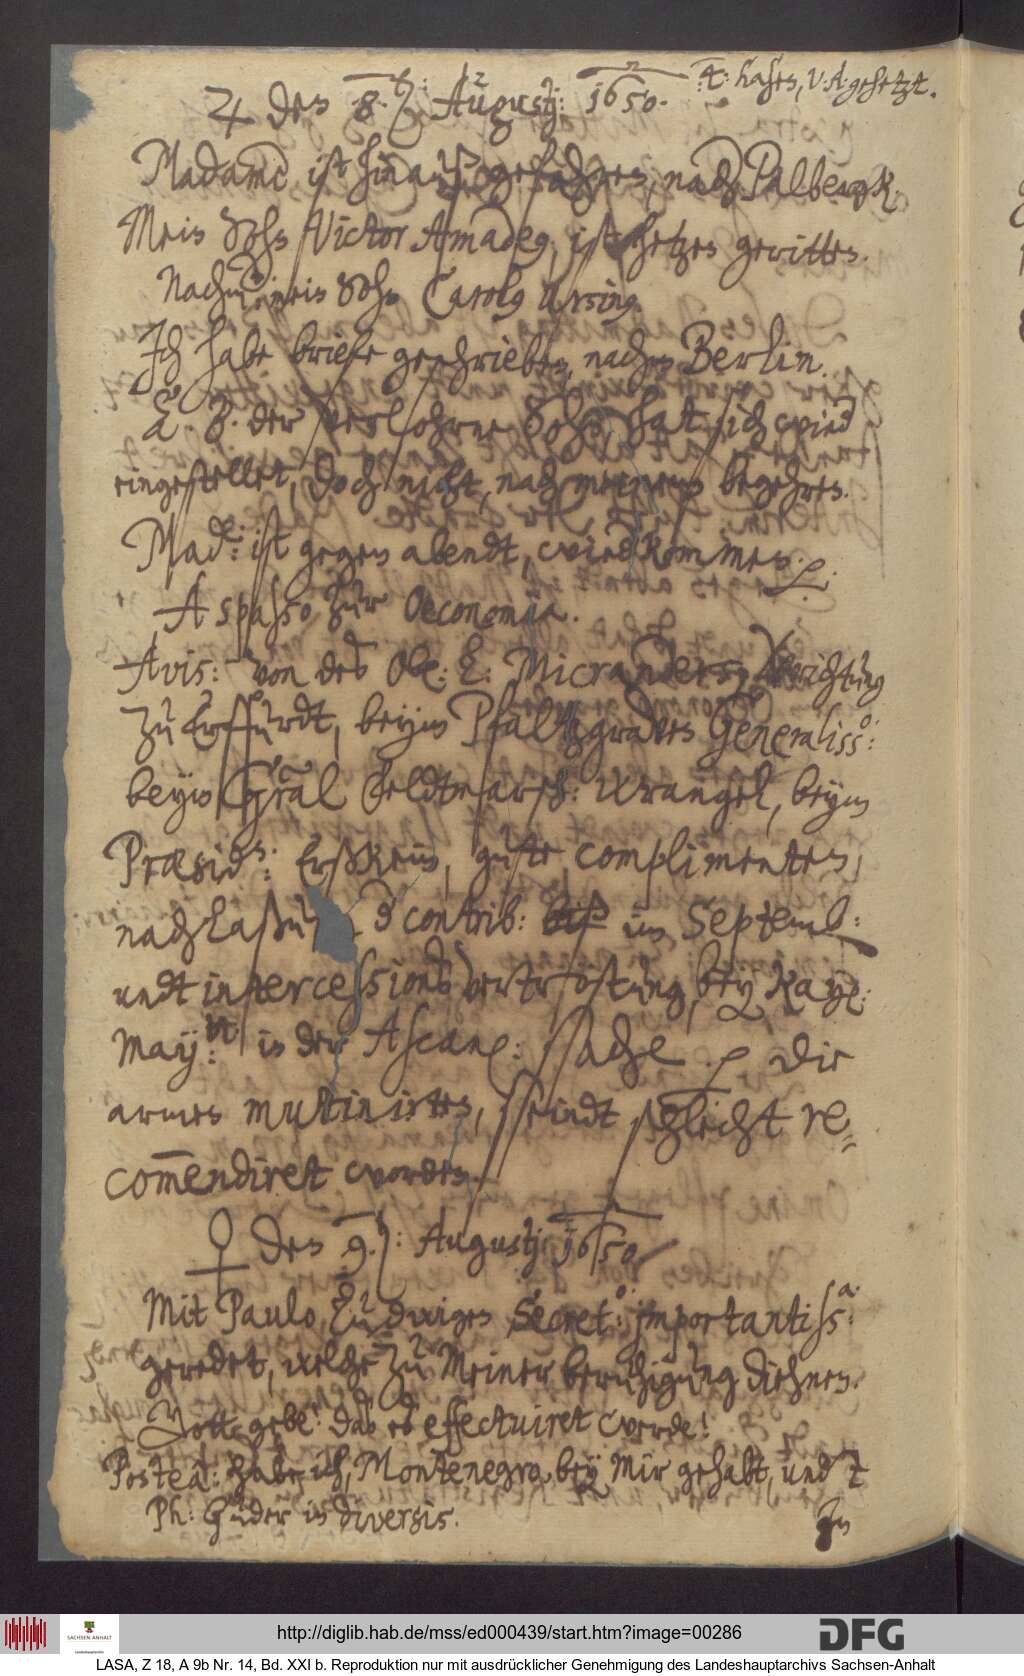 ♃ den 8. Augustj: 1650. A: hasen, v. A. gehetzt.
Madame ist hinauß gefahren, nach Palbergk.
Mein Sohn Victor Amadeus, ist hetzen geritten.
Nachm mein Sohn Carolus Ursinus.
Ich habe briefe geschrieben, nacher Berlin.
E. B. der verlohrne Sohn, hat sich wied
eingestellet, doch nicht, nach meinem begehren.
Made: ist gegen abendt, wied kommen. p.
A spasso zur Oeconomia.
Avis: von des Ob: L: Micranders, verrichtung
zu Erffurdt, beym Pfaltzgraven Generalisso:
beym Gral Feldtmarsch: Wrangel, beym
Præsid: Erßkein, gute complimenten,
nachlaßung d contrib: im Septemb:
undt intercessions vertröstung, bey Kayl:
Mayt: in der Ascan: sache. p Die
armen mutinirten, seindt schlecht re
com̄endiret worden.
♀ den 9. Augustj: 1650.
Mit Paulo Ludwigen Secreto: importantissa:
geredet, welche zu Meiner beruhigung dienen.
Gott gebe! daß es effectuiret werde!
Postea: habe ich, Montenegro, bey mir gehabt, und
Ph: Güder in diversis.
In
http://diglib.hab.de/mss/ed000439/start.htm?image=00286
SACHSEN-ANHALT
Landeshauptarchiv
DFG
LASA, Z 18, A 9b Nr. 14, Bd. XXI b. Reproduktion nur mit ausdrücklicher Genehmigung des Landeshauptarchivs Sachsen-Anhalt